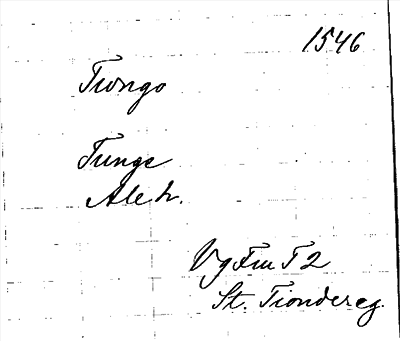 1546
Tiongo
Tunge
Aleh.
Vg Fru T 2
St. Tiondereg.